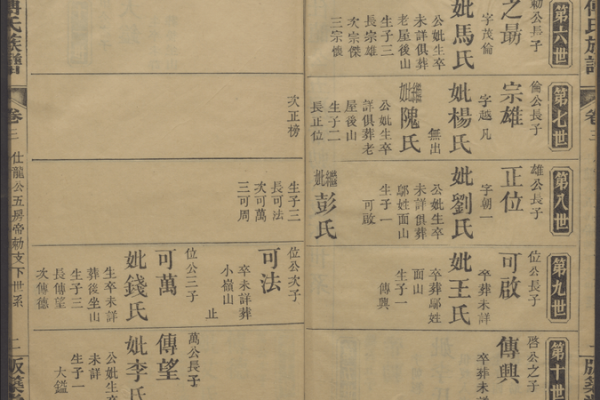 第六世
勑公長子
之勗
字茂倫
妣馬氏
公妣生卒
未詳俱葬
老屋後山
生子三
長宗雄
次宗傑
三宗懷
第七世
倫公長子
宗雄
字越凡
妣楊氏
無出
繼妣隗氏
公妣生卒
詳俱葬老
屋後山
生子二
長正位
次正榜
第八世
雄公長子
正位
字朝一
妣劉氏
公妣生卒
未詳俱葬
鄔姓面山
生子一
可啟
繼妣彭氏
生子三
長可法
次可萬
三可周
第九世
位公長子
可啟
卒葬未詳
妣王氏
卒葬鄔姓
面山
生子一
傳興
位公次子
可法
卒未詳葬
小嶺山
止
位公三子
可萬
妣錢氏
生卒未詳
葬後坐山
生子三
長傳望
次傳德
第十世
啓公之子
傳興
卒葬未詳
萬公長子
傳望
妣李氏
公妣生卒
未詳
生子一
大鎰
氏族譜
卷三
仕龍公五房帝勑支下世系
二
版築